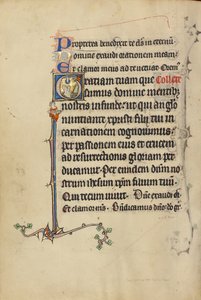 Propterea benedixit te deus in eternum
Domine exaudi orationem meam
Et clamor meus ad te veniat Orem
Gratiam tuam que Collecte
sumus domine mentibus
nostris infunde ut qui angelo
nuntiante xpisti filii tui in
carnationem cognouimus
per passionem eius et crucem
ad resurrectionis gloriam per
ducamur. Per eundem dominum no
strum ihesum xpm filium tuum.
Qui tecum uiuit. Dne exaudi
Et clamor ms. Benedicamus dno. do gr